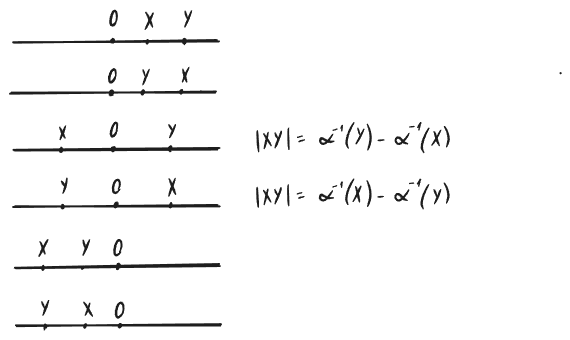 O X Y
O Y X
X O Y |XY| = α⁻¹(Y) - α⁻¹(X)
Y O X |XY| = α⁻¹(X) - α⁻¹(Y)
X Y O
Y X O